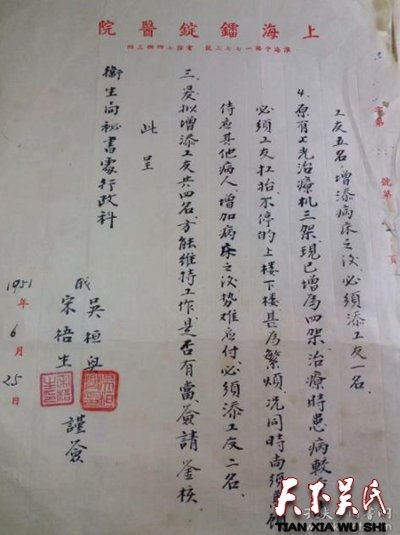 上海鐳錠醫院
工友五名,增添病床之後,必須添工友一名.
4.原有X光治療机三架,現已增為四架,治療時患病較
必須工友扛抬不停的上楼下楼甚為繁煩,况同時尚須
侍應其他病人,增加病床之後势难應付,必須添工友二名.
三.爰拟增添工友共四名,方能維持工作,是否有當,簽請鉴核
此呈
衛生局秘書處行政科
職
吳桓興
宋梧生
謹簽
1951年6月25日
天下吴氏
TIAN XIA WU SHI